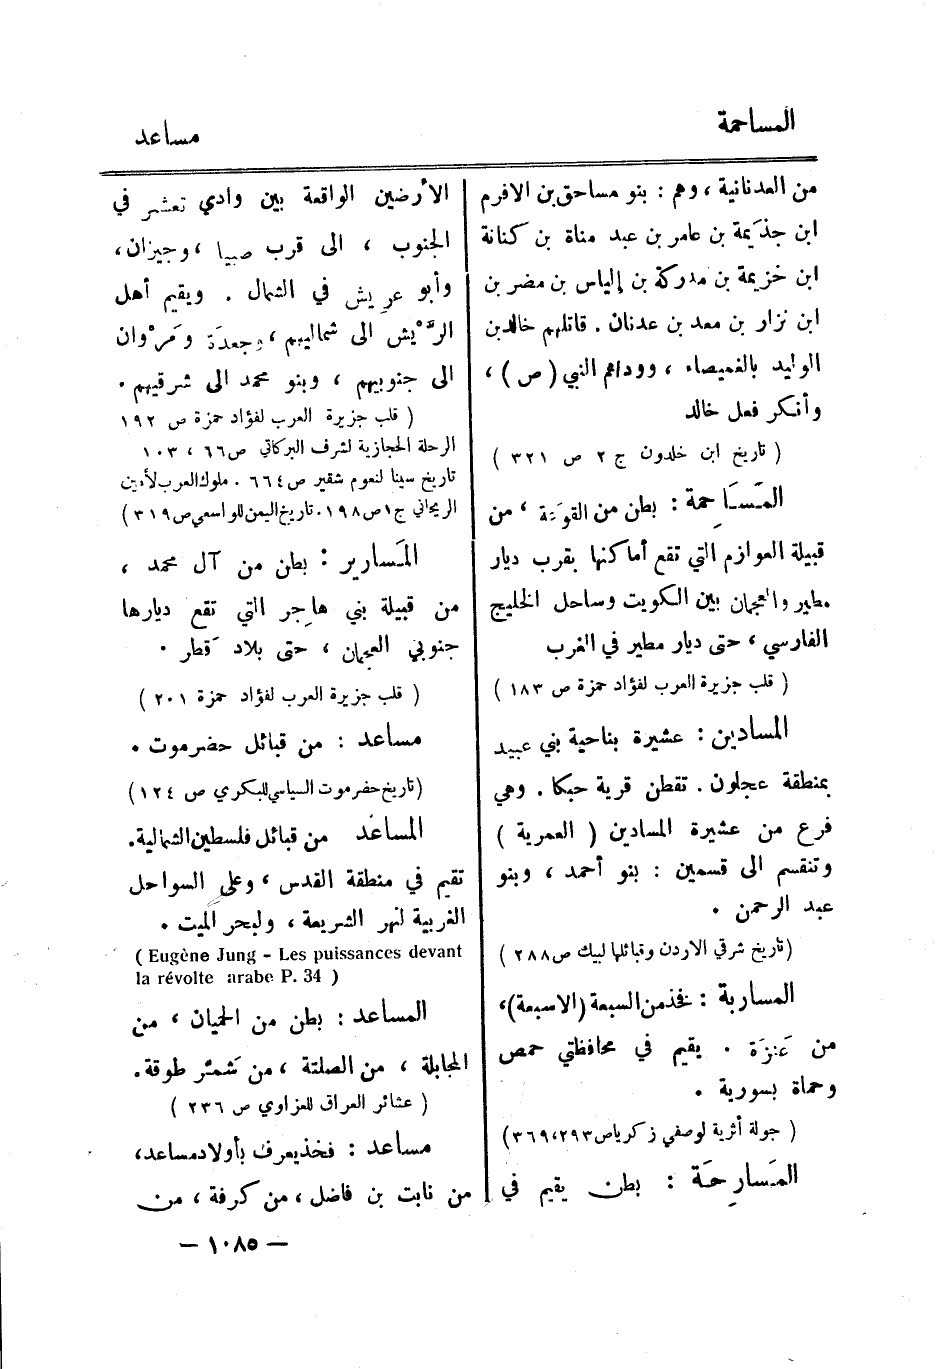 المساحمة
مساعد
من العدنانية ، وهم : بنو مساحق بن الافرم
ابن جذيمة بن عامر بن عبد مناة بن كنانة
ابن خزيمة بن مدركة بن إلياس بن مضر بن
ابن نزار بن معد بن عدنان . قاتلهم خالد بن
الوليد بالغميصاء ، ووداهم النبي ( ص ) ،
وأنكر فعل خالد
( تاريخ ابن خلدون ج ٢ ص ٣٢١ )
المَسَاحِمة : بطن من القوعة ، من
قبيلة العوازم التي تقع أماكنها بقرب ديار
مطير والعجمان بين الكويت وساحل الخليج
الفارسي ، حتى ديار مطير في الغرب
( قلب جزيرة العرب لفؤاد حمزة ص ١٨٣ )
المسادين : عشيرة بناحية بني عبيد
بمنطقة عجلون . تقطن قرية حبكا . وهي
فرع من عشيرة المسادين ( العمرية )
وتنقسم الى قسمين : بنو أحمد ، وبنو
عبد الرحمن .
( تاريخ شرقي الاردن وقبائلها لبيك ص ٢٨٨ )
المساربة : فخذ من السبعة ( الاسبعة ) ،
من عَنَزَة . يقيم في محافظتي حمص
وحماة بسورية .
( جولة أثرية لوصفي زكريا ص ٢٩٣ ، ٣٦٩ )
المَسَارِحَة : بطن يقيم في
الأرضين الواقعة بين وادي تعشر في
الجنوب ، الى قرب صبيا ، وجيزان ،
وأبو عريش في الشمال . ويقيم أهل
الرَّيْش الى شماليهم ، وجعدة ومَرْوان
الى جنوبيهم ، وبنو محمد الى شرقيهم .
( قلب جزيرة العرب لفؤاد حمزة ص ١٩٢
الرحلة الحجازية لشرف البركاتي ص ٦٦ ، ١٠٣
تاريخ سينا لنعوم شقير ص ٦٦٤ . ملوك العرب لأمين
الريحاني ج ١ ص ١٩٨ . تاريخ اليمن للواسعي ص ٣١٩ )
المَسارير : بطن من آل محمد ،
من قبيلة بني هاجر التي تقع ديارها
جنوبي العجمان ، حتى بلاد قَطر .
( قلب جزيرة العرب لفؤاد حمزة ٢٠١ )
مساعد : من قبائل حضرموت .
( تاريخ حضرموت السياسي للبكري ص ١٢٤ )
المساعد من قبائل فلسطين الشمالية .
تقيم في منطقة القدس ، وعلى السواحل
الغربية لنهر الشريعة ، ولبحر الميت .
( Eugène Jung - Les puissances devant
la révolte arabe P. 34 )
المساعد : بطن من الحميان ، من
المجابلة ، من الصلتة ، من شمَّر طوقة .
( عشائر العراق للعزاوي ص ٢٣٦ )
مساعد : فخذ يعرف بأولاد مساعد ،
من نابت بن فاضل ، من كرفة ، من
— ١٠٨٥ —